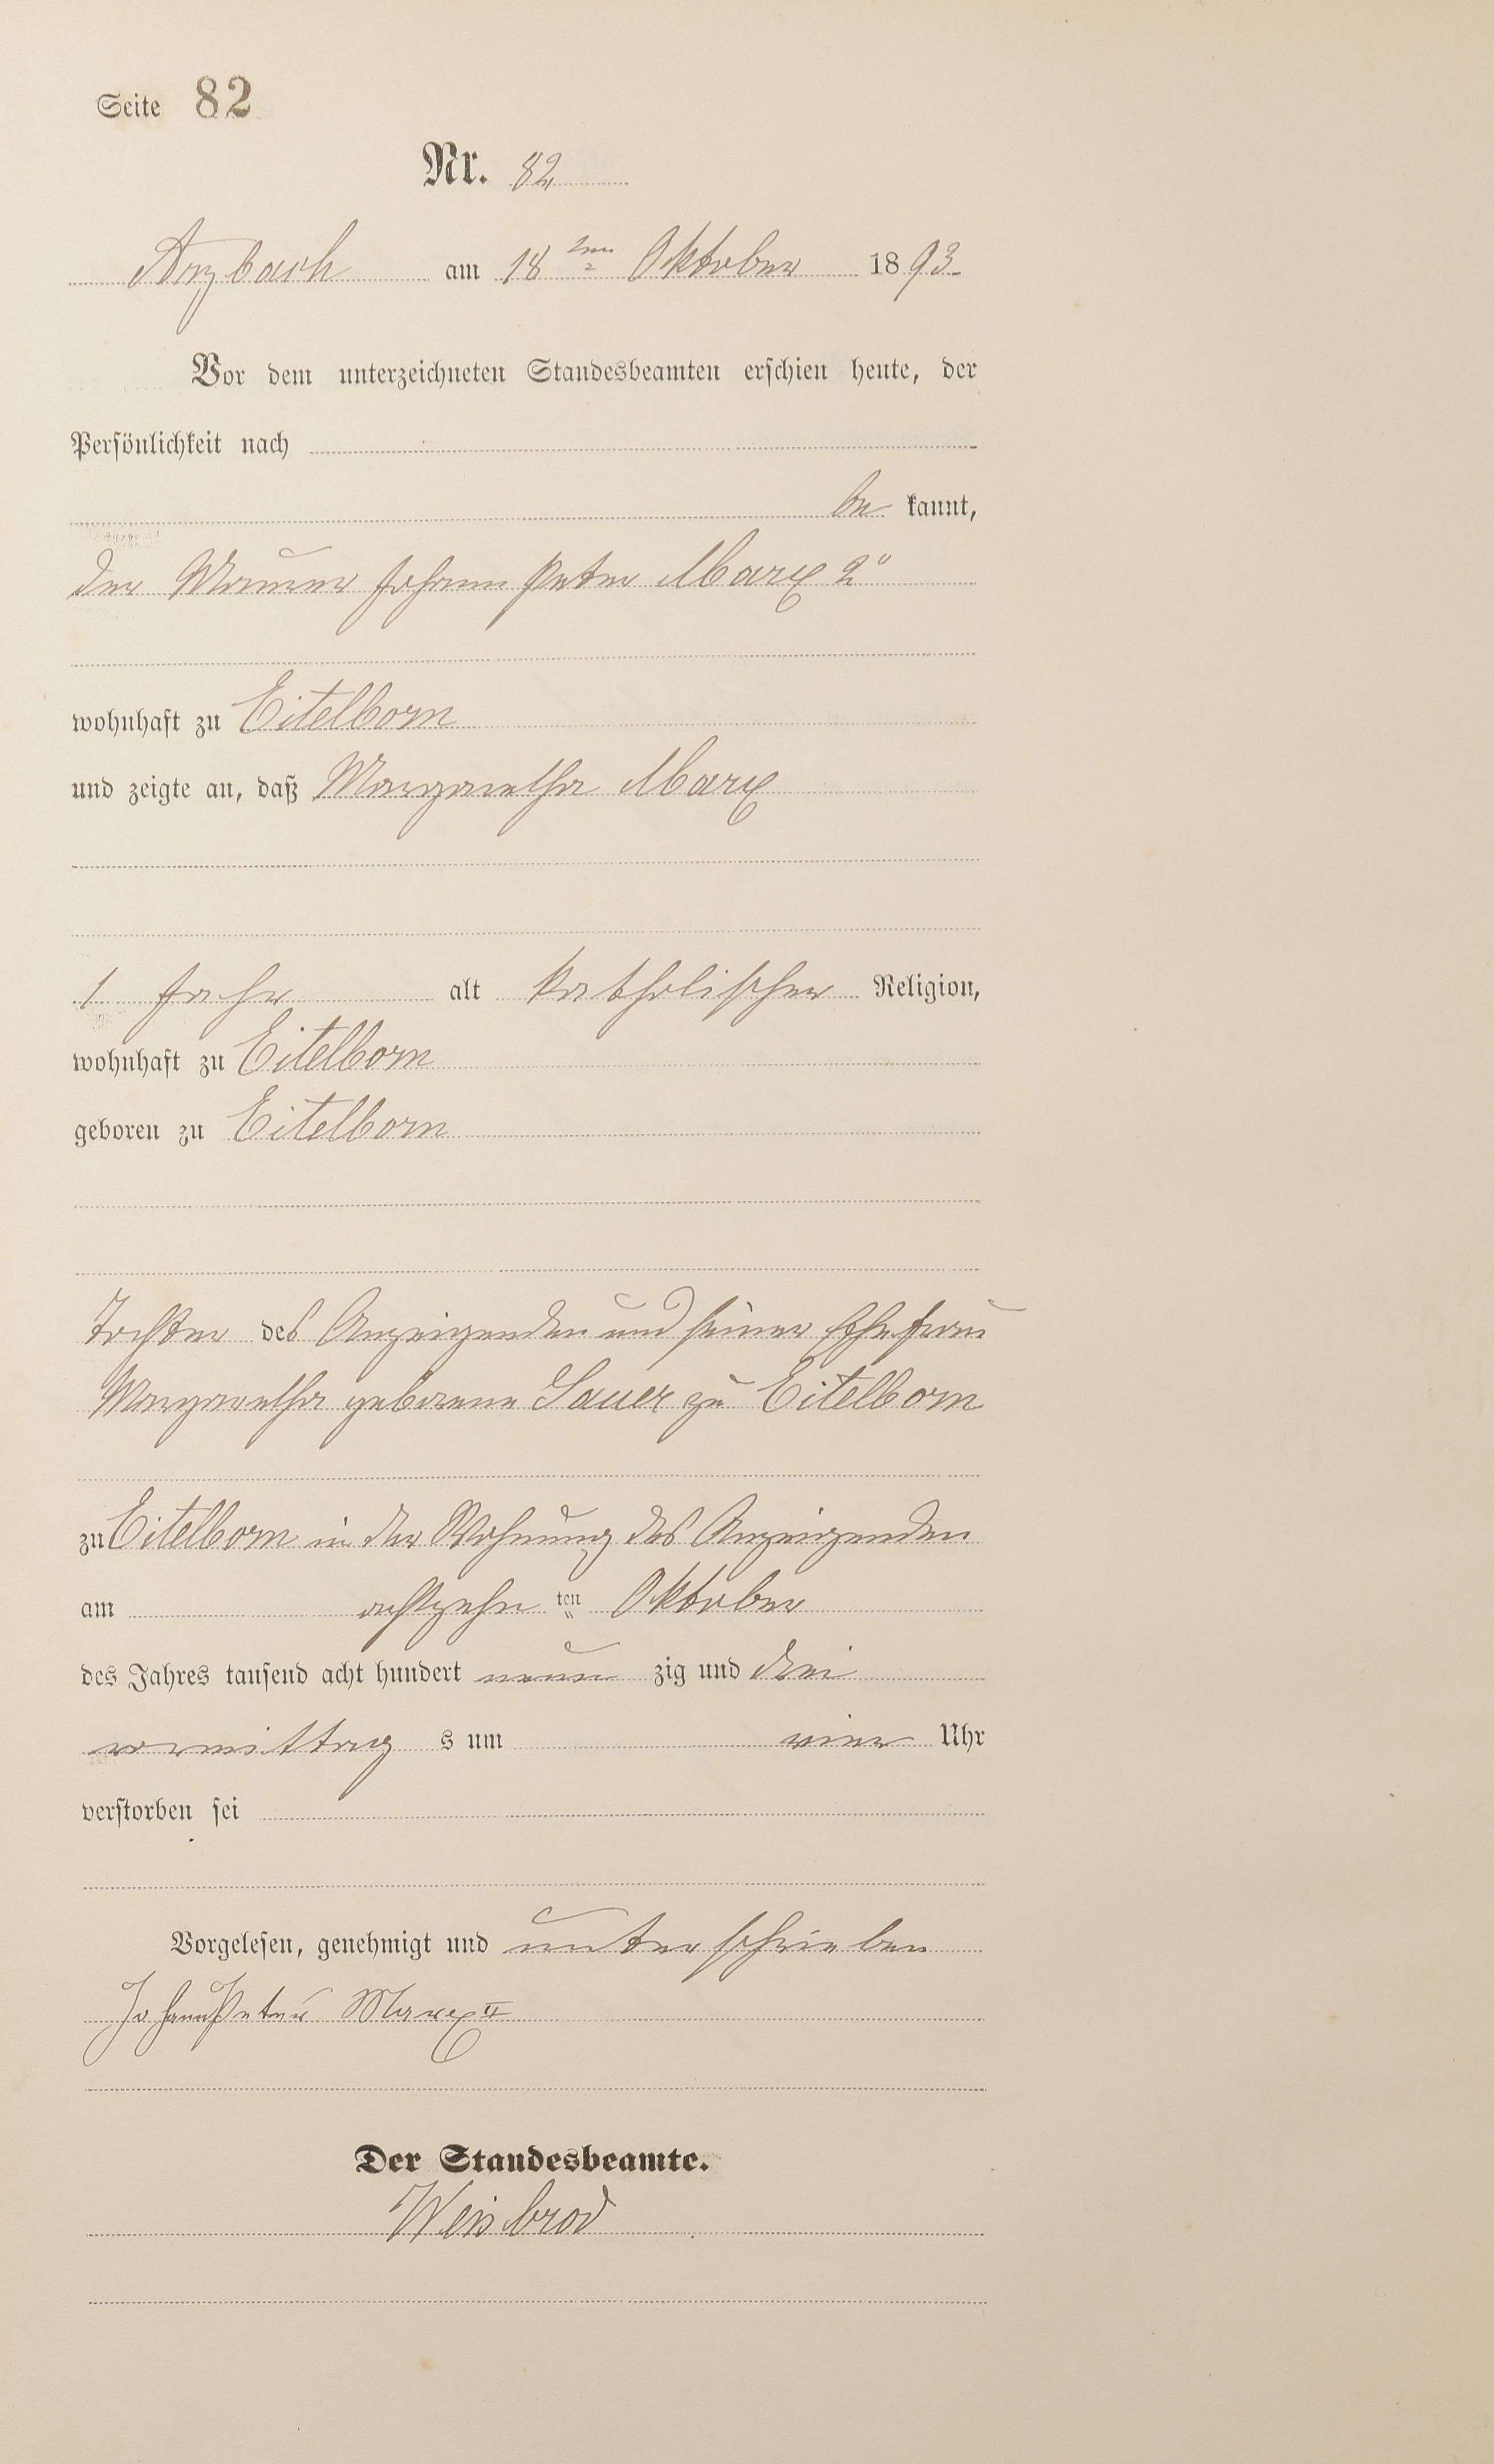 Seite 82
Nr. 82
Arzbach am 18ten Oktober 1893.
Vor dem unterzeichneten Standesbeamten erschien heute, der
Persönlichkeit nach
be kannt,
der Maurer Johann Peter Marx 2r
wohnhaft zu Eitelborn
und zeigte an, daß Margaretha Marx
1 Jahr alt katholischer Religion,
wohnhaft zu Eitelborn
geboren zu Eitelborn
Tochter des Anzeigenden und seiner Ehefrau
Margaretha geborene Sauer zu Eitelborn
zu Eitelborn in der Wohnung des Anzeigenden
am achtzehn ten Oktober
des Jahres tausend acht hundert neun zig und drei
vormittag s um vier Uhr
verstorben sei
Vorgelesen, genehmigt und unterschrieben
Johann Peter Marx II
Der Standesbeamte.
Weisbrod